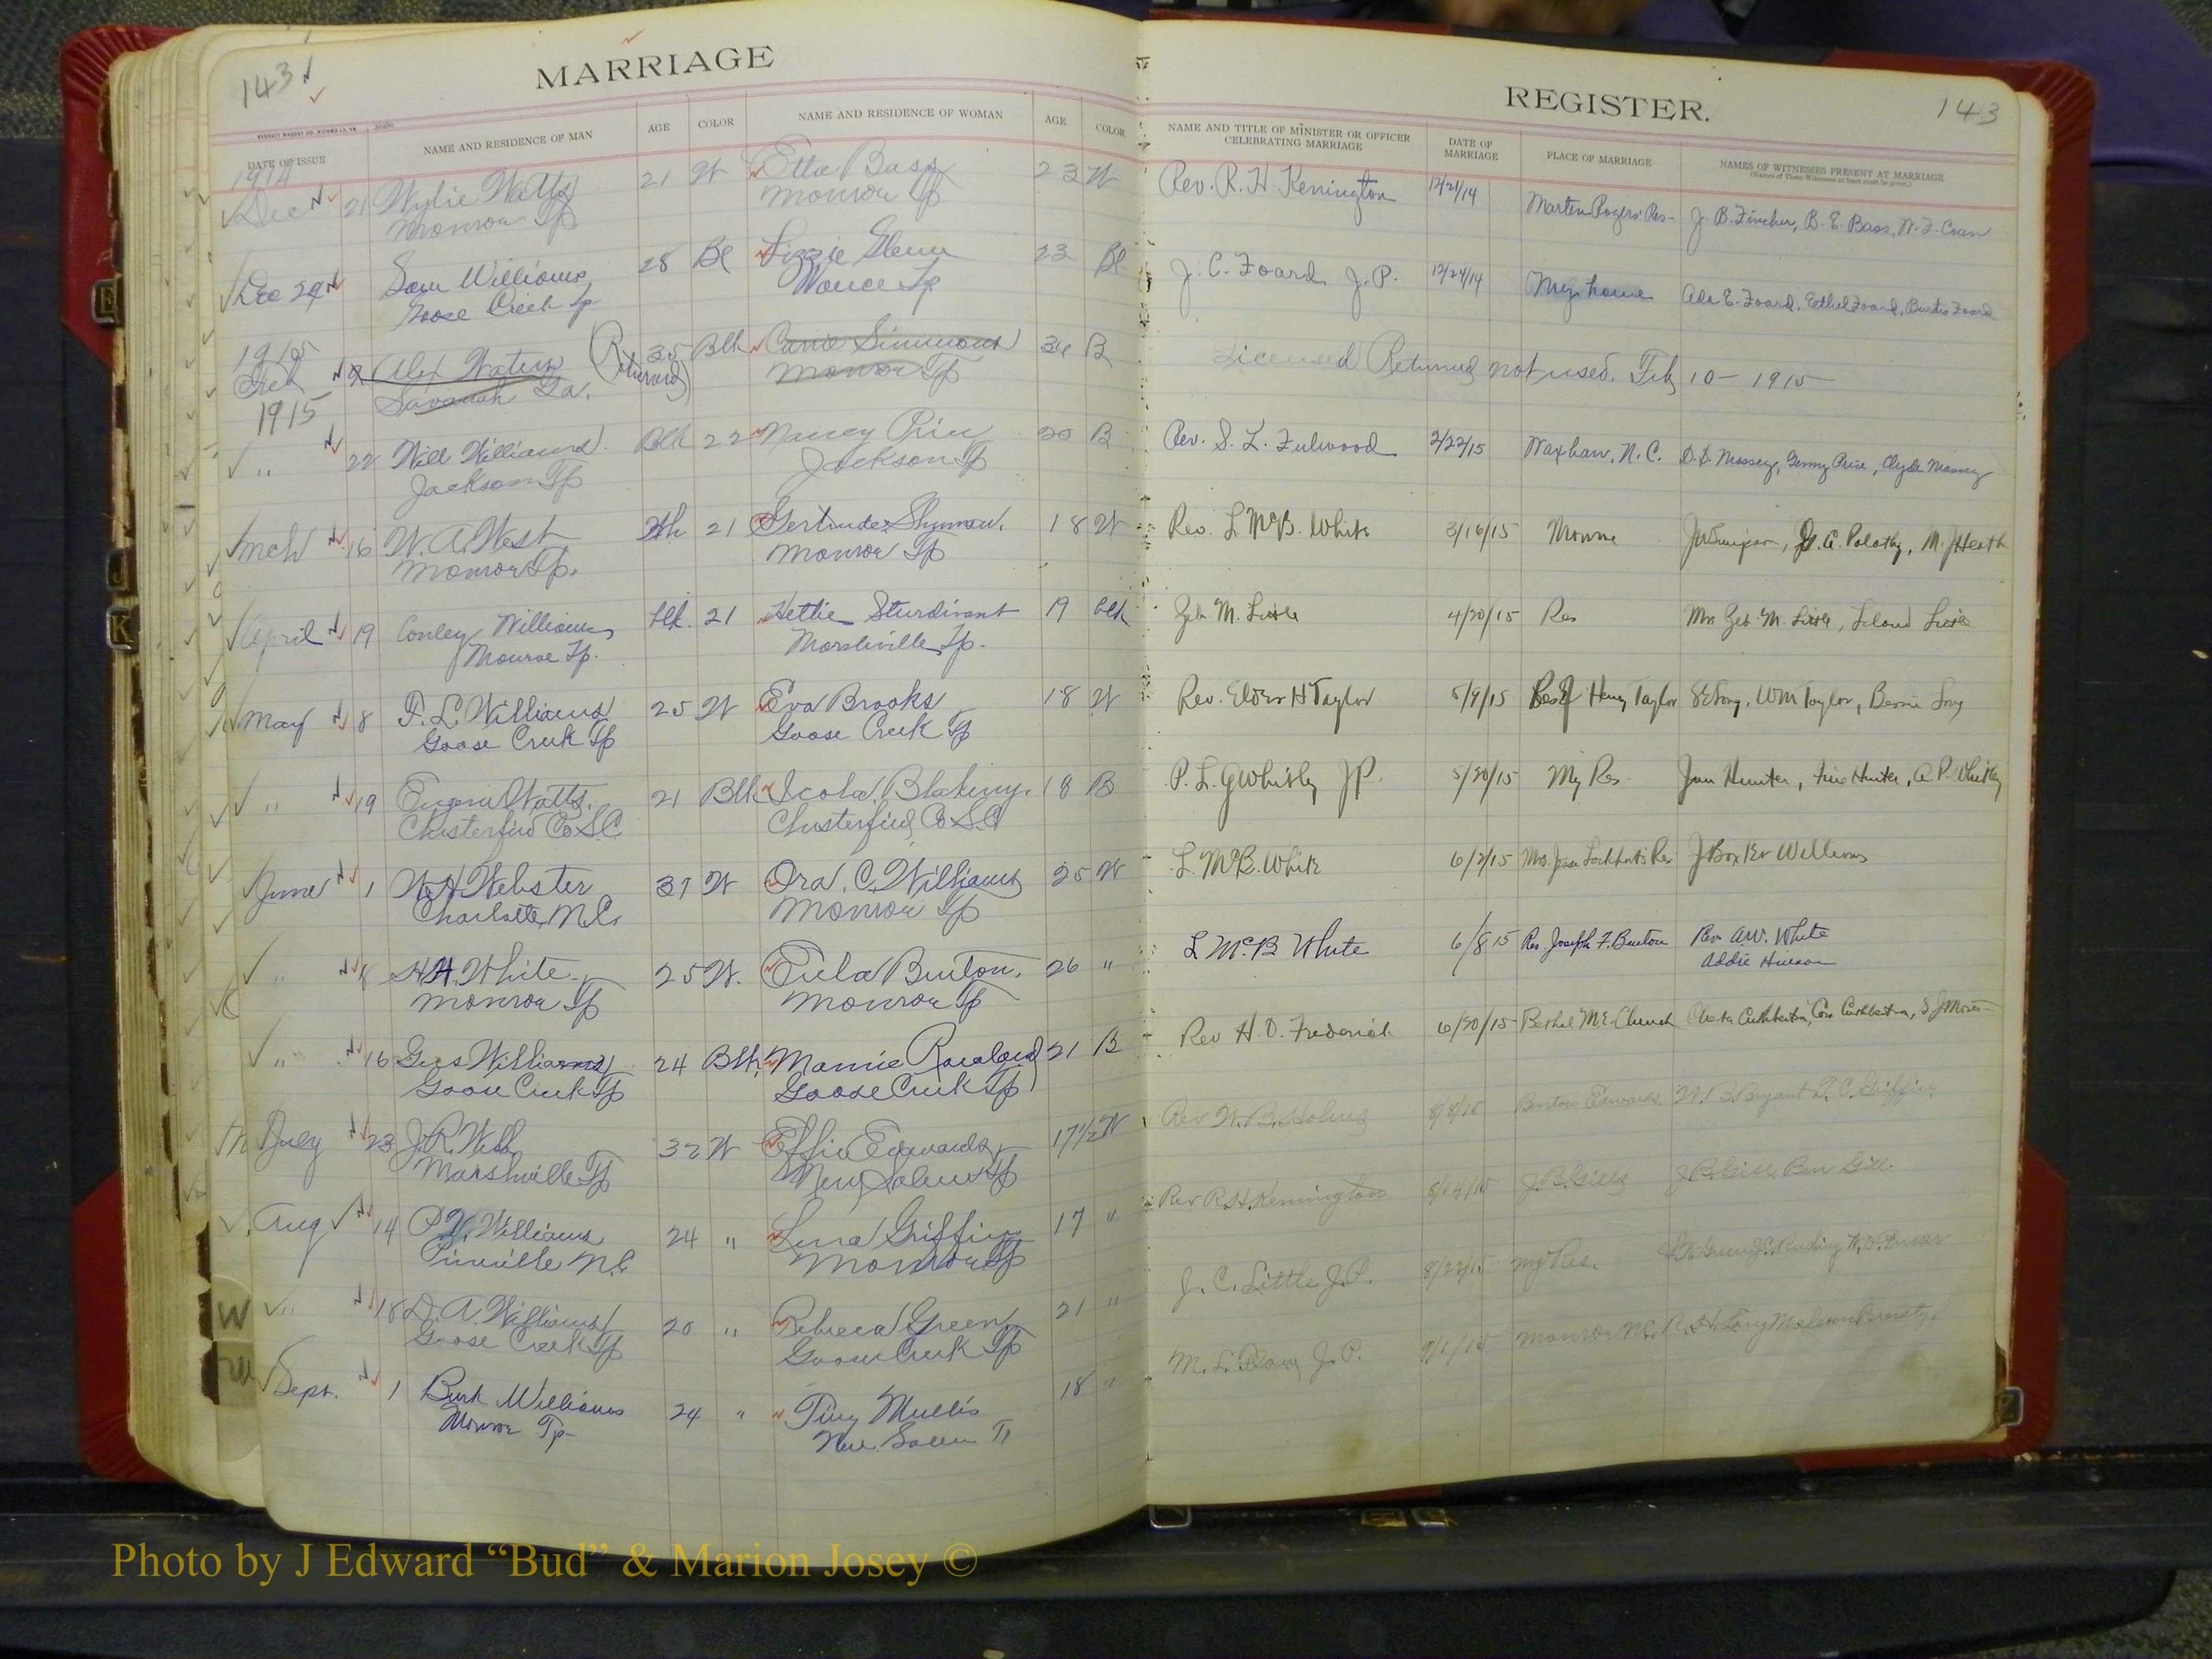 143
MARRIAGE
EVERETT WADDEY CO. RICHMOND, VA
DATE OF ISSUE
NAME AND RESIDENCE OF MAN
AGE
COLOR
NAME AND RESIDENCE OF WOMAN
AGE
COLOR
1914
Dec 21 Wylie Watts 21 W Etta Bass 23 W
Monroe Tp Monroe Tp
Dec 24 Sam Williams 28 Bl Lizzie Glenn 23 Bl
Goose Creek Tp Vance Tp
1915
Feb 2 Alex Waters (Returned) 35 Blk Carrie Simmons 36 B
Savanah Ga. Monroe Tp
1915
" 22 Will Williams Blk 22 Nancy Price 20 B
Jackson Tp Jackson Tp
Mch 16 W. A. West Wh 21 Gertrude 18 W
Monroe Tp. Monroe Tp
April 19 Conley Williams blk. 21 Hettie Sturdivant 19 blk
Monroe Tp. Marshville Tp.
May 8 F. L. Williams 25 W Eva Brooks 18 W
Goose Creek Tp Goose Creek Tp
" 19 Eugene Watts 21 Blk Icola Blakeny. 18 B
Chesterfield Co S.C. Chesterfield Co S.C
June 1 W. H. Webster 37 W Ora. C. Williams 25 W
Charlotte, N.C. Monroe Tp
" 8 H. H. White 25 W. Eula Benton. 26 "
Monroe Tp Monroe Tp
" 16 Gus Williams 24 Blk Mamie 21 B
Goose Creek Tp Goose Creek Tp
July 23 J. R. Webb 32 W Effie Edwards 17½ W
Marshville Tp New Salem Tp
Aug 14 P. W. Williams 24 " Lura Griffin 17 "
Pineville N.C. Monroe Tp
" 18 D. A. Williams 20 " Rebeca Green 21 "
Goose Creek Tp Goose Creek Tp
Sept. 1 Burk Williams 24 " Tiny Mullis 18 "
Monroe Tp New Salem Tp
REGISTER.
143
NAME AND TITLE OF MINISTER OR OFFICER
CELEBRATING MARRIAGE
DATE OF
MARRIAGE
PLACE OF MARRIAGE
NAMES OF WITNESSES PRESENT AT MARRIAGE
(Names of Three Witnesses at least must be given.)
Rev. R. H Kenington 12/21/14 Marten Rogers Res- J. B. Fincher, B. E. Bass,
J. C. Foard J. P. 12/24/14 My house Ada E. Foard, Ethel Foard, Foard
Licensed Returned not used. Feb 10 - 1915
Rev. S. L. Fulwood 2/22/15 Waxhaw, N.C. D. D. Massey, Price, Clyde Massey
Rev. L McB. White 3/16/15 Monroe M. J Heath
Zeb M. Little 4/20/15 Res Mrs Zeb M. Little, Leland Little
Rev. Elder H Taylor 5/9/15 Res of Henry Taylor Long, WM Taylor, Long
P. L. J.P. 5/20/15 My Res Jim Hunter, Hunter, A. P.
L McB. White 6/2/15 Mrs. Lockhart's Res Williams
L McB White 6/8 15 Res. Joseph F. Benton Rev A.W. White
Addie
Rev H. D. Frederick 6/20/15 Bethel M.E. Church Cuthbertson, Cora Cuthbertson,
Rev W. B. 8/8/15 Edwards Bryant T. C. Griffin
Rev R. H. Kennington 8/14/15 J. B. Gill, Ben Gill.
J. C. Little J.P. 8/22/15 My Res.
M. L. Flow J. P. 9/1/15 Monroe N.C. R. H. Long
E
J
K
W
Photo by J Edward “Bud” & Marion Josey ©